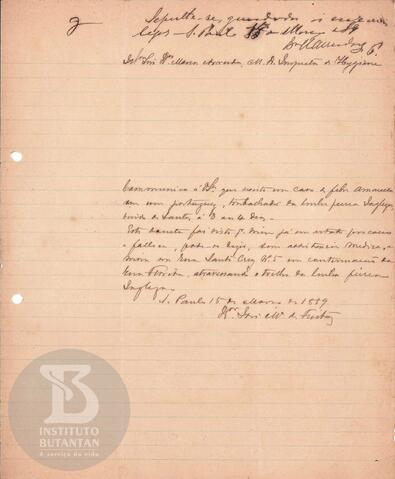 2
Sepulte-se, guardadas as
S. Paulo 15 de Março 89
Snr. Dr. Marcos Arruda, M. D. Inspector de Hygiene
Communico á VSª. que existe um caso de febre amarella
em um portuguez, trabalhador da linha ferrea Ingleza,
vindo de Santos, á 3 ou 4 dias.
Este doente foi visto pr. mim já em estado
e falleceu, pode-se dizer, sem assistencia medica.
Mora na Rua Santa Cruz Nº 5 em continuação da
Rua Florida, atravessando o trilho da linha ferrea
Ingleza.
S. Paulo 15 de Março de 1889
Dr. José Mª. de Freitas
INSTITUTO
BUTANTAN
A serviço da vida